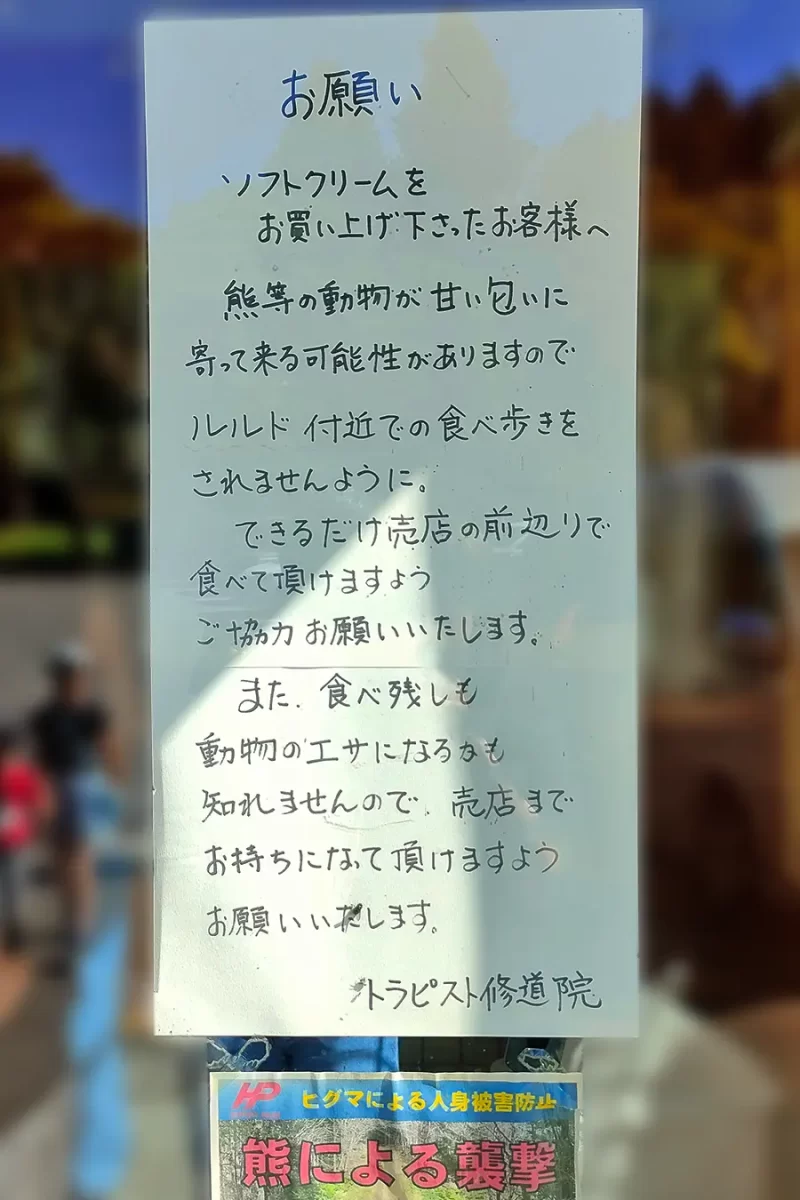 お願い
ソフトクリームを
お買い上げ下さったお客様へ
熊等の動物が甘い匂いに
寄って来る可能性がありますので
ルルド付近での食べ歩きを
されませんように。
できるだけ売店の前辺りで
食べて頂けますよう
ご協力お願いいたします。
また、食べ残しも
動物のエサになるかも
知れませんので、売店まで
お持ちになって頂けますよう
お願いいたします。
トラピスト修道院
HP ヒグマによる人身被害防止
熊による襲撃